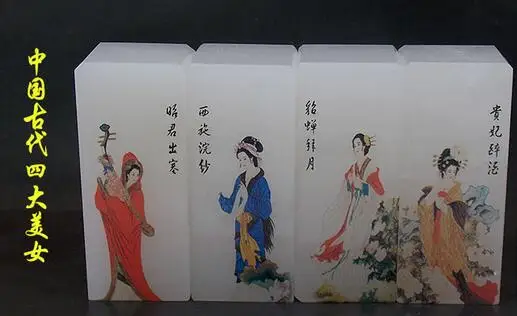 中国古代四大美女
昭君出寒
西施浣纱
貂蟬拜月
貴妃醉酒